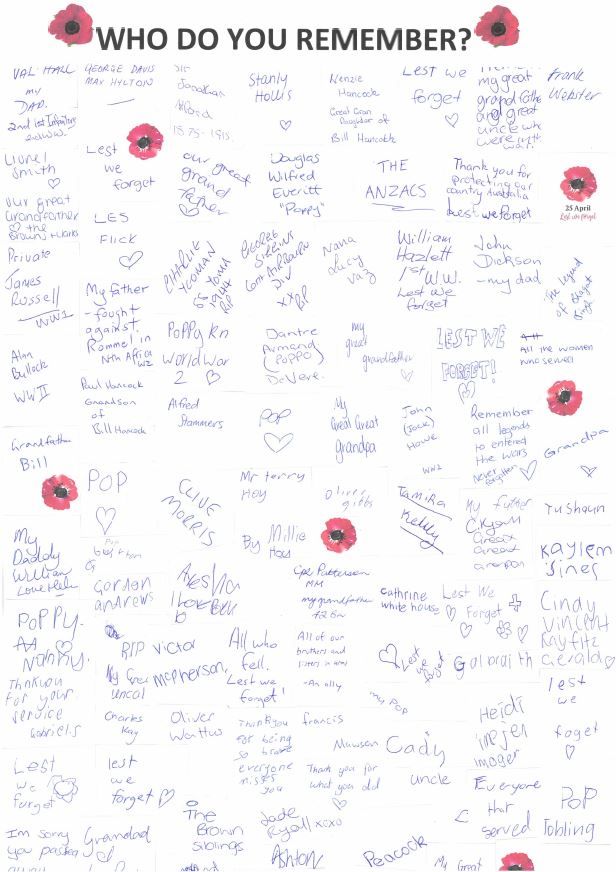 WHO DO YOU REMEMBER?
VAL HALL
my
DAD.
2nd 1st Infantry
2nd W.W.
GEORGE DAVIS
MAX HYLTON
Jonathan
Alford
1875-1915
Stanly
Hollis
Kenzie
Hancock
Great Gran
Daughter of
Bill Hancock
Lest we
forget
my great
grandfather
and great
uncle who
were in the
war!
Frank
Webster
Lionel
Smith
our great
Grandfather
Lest
we
forget
our great
grand
father
Douglas
Wilfred
Everitt
"Poppy"
THE
ANZACS
Thank you for
protecting our
country Australia
Lest we forget
25 April
Lest we forget
Private
James
Russell
WW1
LES
FLICK
CHARLIE
YEOMAN
RIP
GEORGE
DIV
xx RIP
Nana
Lucy
Vaz
William
Hazlett
1st W.W.
Lest we
forget
John
Dickson
- my dad
The Legend
of Bhagat
Singh
My father
- fought
against
Rommel in
Nth Africa
W2
Alan
Bullock
WWII
Poppy Kn
World War
2
Dantre
Armand
(POPPO)
DeVere.
my
great
grandfather
LEST WE
FORGET!
All the women
who served
Paul Hancock
Grandson
of
Bill Hancock
Alfred
Stammers
POP
My
Great Great
grandpa
John
(Jack)
Howe
WW2
Remember
all legends
to entered
the wars
Never
forgotten
Grandpa
Grandfather
Bill
POP
CLIVE
MORRIS
Mr terry
Hoy
By Millie
Hoy
Oliver
gibbs
Tamika
Kelly
My father
great
great
Tu Shaun
My
Daddy
William
Pop
Gordon
andrews
Aesha
I Love
Cpl Patterson
MM
my grandfather
42 Bn
Cathrine
white house
Lest We
Forget
Kaylem
Jines
Cindy
Vincent
Kayfitz
Gerald
POPPY.
Nanny.
Thankyou
for your
service
Gabriels
RIP Victor
McPherson,
My Great
uncal
All who
fell.
Lest we
forget!
All of our
brothers and
sisters in arms
- An ally
Lest we
forget
Galbraith
my Pop
lest
we
foget
Charles
Kay
Oliver
Wattus
Thinkyou
for being
so brave
everyone
misses
you
francis
Mawson
Thank you for
what you did
Cady
uncle
Heidi
imager
Lest
we
forget
lest
we
forget
Everyone
that
served
POP
Tobling
Im sorry
you passed
Grandad
The
Brown
Siblings
Jade
Ryall xoxo
Ashton
Peacock
My Great